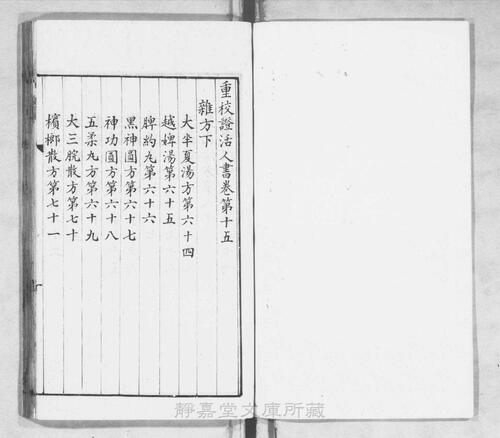 重校證活人書卷第十五
雜方下
大半夏湯方第六十四
越婢湯第六十五
脾約丸第六十六
黑神圓方第六十七
神功圓方第六十八
五柔丸方第六十九
大三脘散方第七十
檳榔散方第七十一
靜嘉堂文庫所藏